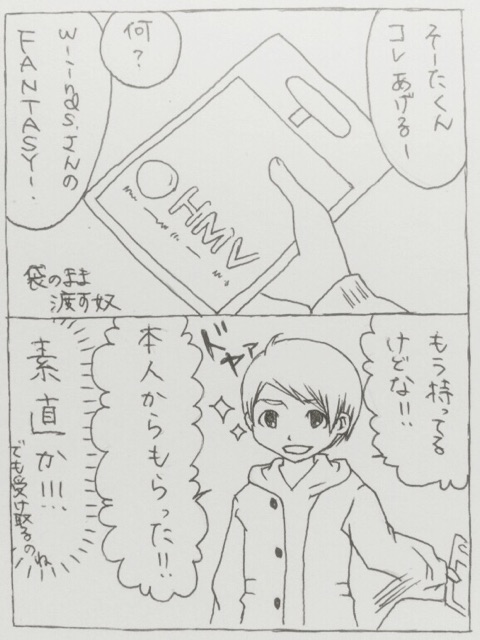 そーたくん
コレあげるー
何？
w-inds.さんの
FANTASY.
HMV
袋のまま
渡す奴
もう持ってる
けどな!!
ドヤァ
本人からもらった!!
素直か!!!
でも受け取るのね